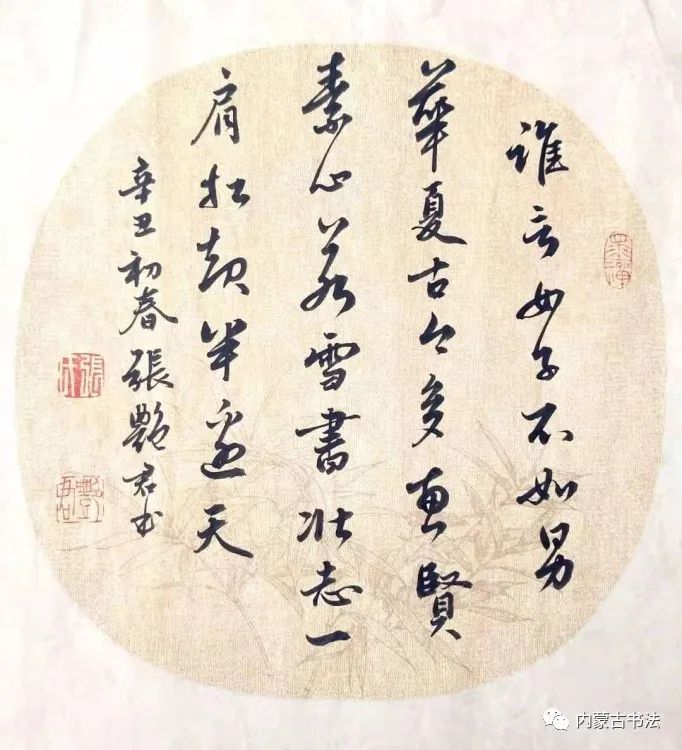 誰言女子不如男
華夏古今多惠賢
素心若雪書壯志一
肩扛起半邊天
辛丑初春張艷君書
内蒙古书法